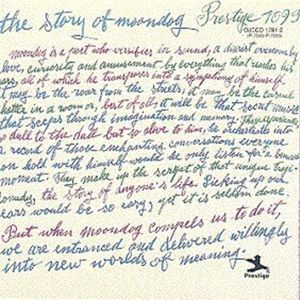 the story of moondog Prestige 7099
OJCCD 1741-2
(P-7099)
moondog is a poet who versifies in sound, a diarist overcome by
love, curiosity and amusement by everything that reaches his
ears all of which he transposes into a symphony of himself.
it may be the roar from the streets, it may be the casual
chatter in a room or, best of all, it will be that secret music
that seeps through imagination and memory. These experiences
so dull to the dull but so alive to him, he orchestrates into
a record of those enchanting conversations everyone
can hold with himself would he only listen for a
moment. They make up the script of that unique
the story of anyone's life. Picking up our
ears would be so easy, yet it is seldom done.
But when moondog compels us to do it,
we are entranced and delivered willingly
into new worlds of meaning.
Prestige